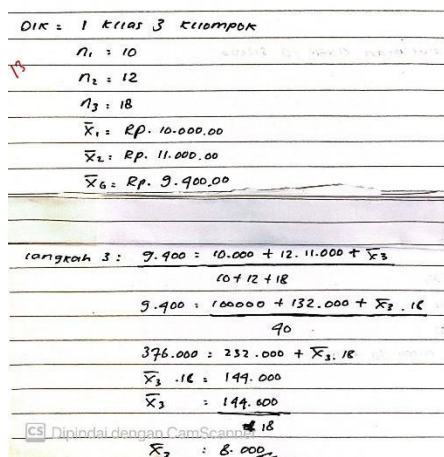 DIK : 1 Kelas 3 Kelompok
13
n₁ : 10
n₂ : 12
n₃ : 18
x̄₁ : Rp. 10.000.00
x̄₂ : Rp. 11.000.00
x̄G : Rp. 9.400.00
langkah 3 : 9.400 = 10.000 + 12. 11.000 + x̄₃
10 + 12 + 18
9.400 : 100000 + 132.000 + x̄₃ . 18
40
376.000 : 232.000 + x̄₃. 18
x̄₃ .18 : 144.000
x̄₃ : 144.000
18
CS Dipindai dengan CamScanner
x̄₃ : 8.000